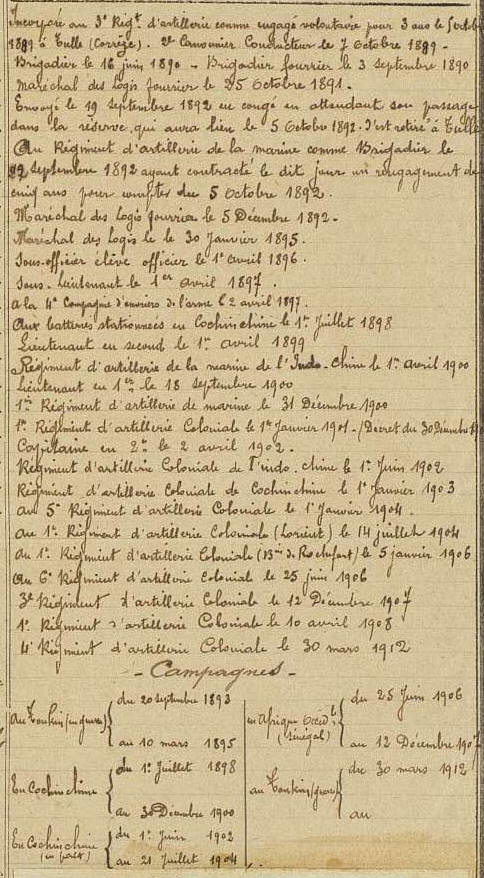 Incorporé au 3e Régt d'artillerie comme engagé volontaire pour 3 ans le 5 octobre
1889 à Tulle (Corrèze). 2e Canonnier Conducteur le 7 Octobre 1889 -
Brigadier le 16 juin 1890 - Brigadier fourrier le 3 Septembre 1890
Maréchal des Logis fourrier le 25 Octobre 1891.
Envoyé le 19 Septembre 1892 en congé en attendant son passage
dans la réserve qui aura lieu le 5 Octobre 1892. S'est retiré à Tulle
Au Régiment d'artillerie de la marine comme Brigadier le
Septembre 1892 ayant contracté le dit jour un rengagement de
cinq ans pour compter du 5 octobre 1892.
Maréchal des Logis fourrier le 5 Décembre 1892 -
Maréchal des Logis le le 30 Janvier 1895.
Sous-officier élève officier le 1er avril 1896.
Sous-Lieutenant le 1er avril 1897.
a la 4e Compagnie d'ouvriers de l'arme le 2 avril 1897.
Aux batteries stationnées en Cochinchine le 1er Juillet 1898
Lieutenant en second le 1er avril 1899
Régiment d'artillerie de la marine de l'Indo-Chine le 1er Avril 1900
Lieutenant en 1er le 18 Septembre 1900
1er Régiment d'artillerie de marine le 31 Décembre 1900
1er Régiment d'artillerie Coloniale le 1er Janvier 1901 - (Décret du 30 Décembre
Capitaine en 2e le 2 avril 1902.
Régiment d'artillerie Coloniale de l'indo-chine le 1er Juin 1902
Régiment d'artillerie Coloniale de Cochinchine le 1er Janvier 1903
au 5e Régiment d'artillerie Coloniale le 1er Janvier 1904.
au 1er Régiment d'artillerie Coloniale (Lorient) le 14 juillet 1904
au 1er Régiment d'artillerie Coloniale (Bies de Rochefort) le 5 janvier 1906
Au 6e Régiment d'artillerie Coloniale le 25 juin 1906
3e Régiment d'artillerie Coloniale le 12 Décembre 1907
1er Régiment d'artillerie Coloniale le 10 avril 1908
4e Régiment d'artillerie Coloniale le 30 mars 1912
- Campagnes -
Au Tonkin (en guerre) { du 20 septembre 1893
au 10 mars 1895
En Cochinchine { du 1er Juillet 1898
au 30 Décembre 1900
En Cochinchine (en paix) { du 1er Juin 1902
au 21 Juillet 1904.
en Afrique Occidle (Sénégal) { du 25 Juin 1906
au 12 Décembre 1907
au Tonkin (guerre) { du 30 mars 1912
au